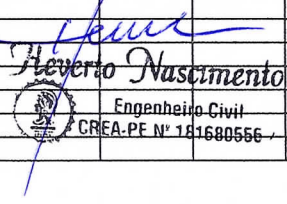 Heverto Nascimento
Engenheiro Civil
CREA-PE Nº 181680556